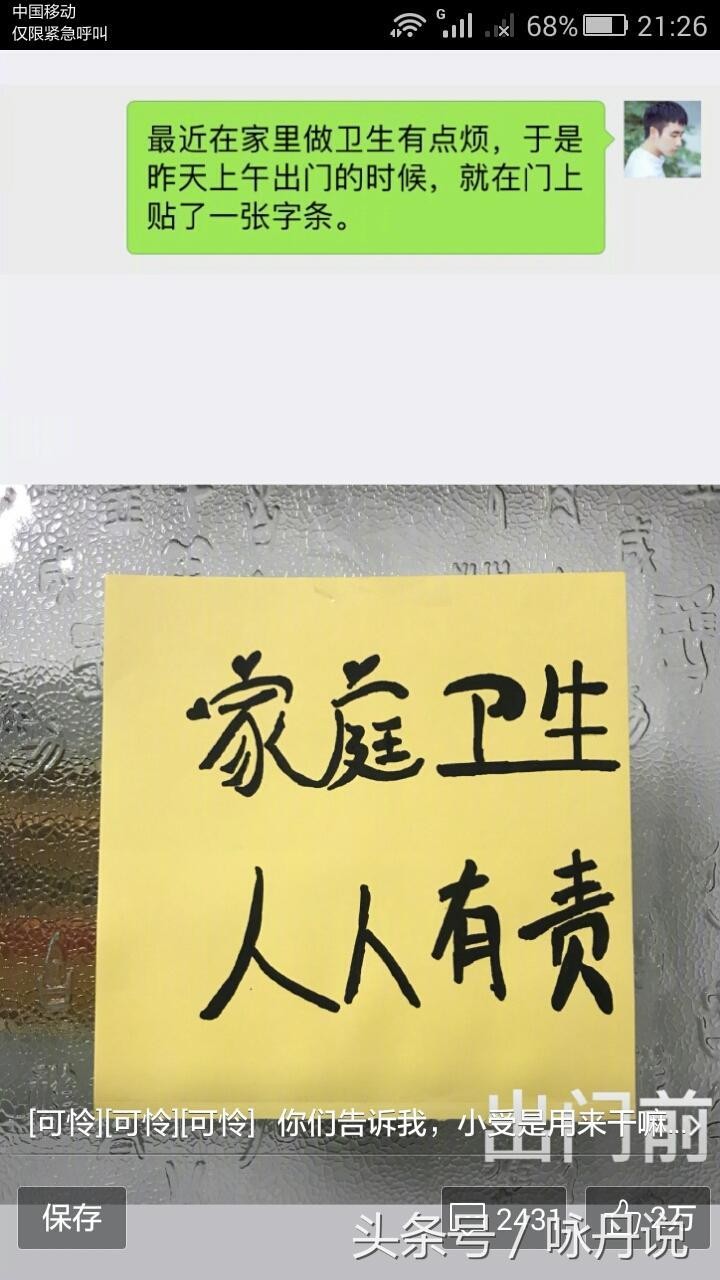 中国移动
仅限紧急呼叫
G
68%
21:26
最近在家里做卫生有点烦，于是
昨天上午出门的时候，就在门上
贴了一张字条。
家庭卫生
人人有责
出门前
[可怜][可怜][可怜] 你们告诉我，小受是用来干嘛...
保存
2431
2万
头条号 / 咏丹说